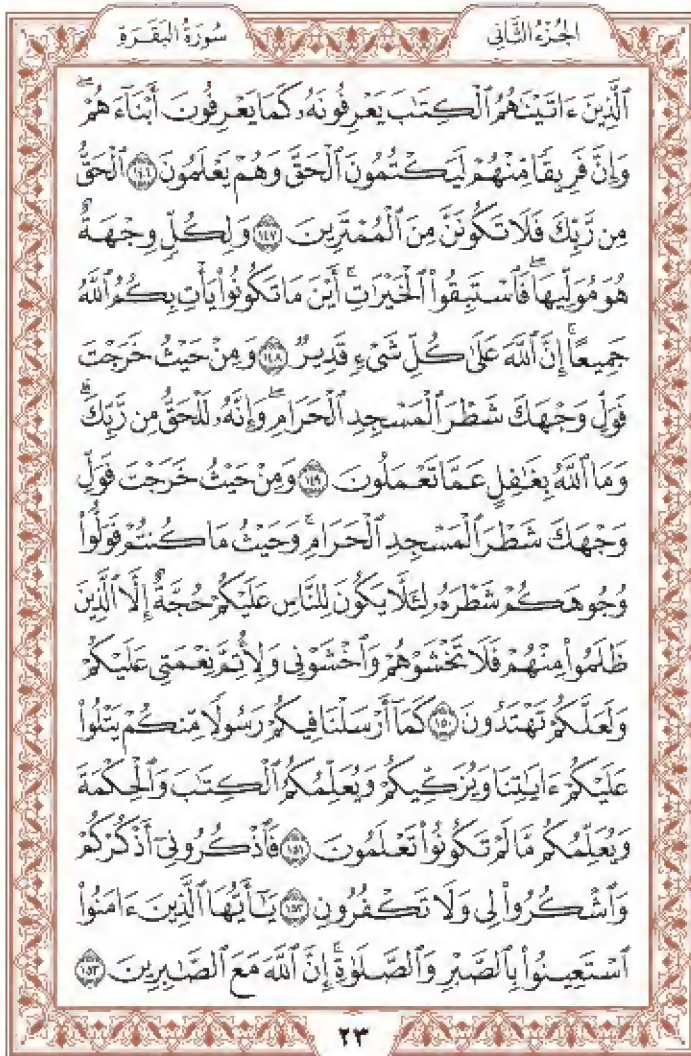 سُورَةُ البَقَرَةِ الجُزْءُ الثَّانِي
ٱلَّذِينَ ءَاتَيْنَٰهُمُ ٱلْكِتَٰبَ يَعْرِفُونَهُۥ كَمَا يَعْرِفُونَ أَبْنَآءَهُمْۖ
وَإِنَّ فَرِيقًا مِّنْهُمْ لَيَكْتُمُونَ ٱلْحَقَّ وَهُمْ يَعْلَمُونَ ١٤٦ ٱلْحَقُّ
مِن رَّبِّكَ فَلَا تَكُونَنَّ مِنَ ٱلْمُمْتَرِينَ ١٤٧ وَلِكُلٍّ وِجْهَةٌ
هُوَ مُوَلِّيهَاۖ فَٱسْتَبِقُوا۟ ٱلْخَيْرَٰتِۚ أَيْنَ مَا تَكُونُوا۟ يَأْتِ بِكُمُ ٱللَّهُ
جَمِيعًاۚ إِنَّ ٱللَّهَ عَلَىٰ كُلِّ شَىْءٍ قَدِيرٌ ١٤٨ وَمِنْ حَيْثُ خَرَجْتَ
فَوَلِّ وَجْهَكَ شَطْرَ ٱلْمَسْجِدِ ٱلْحَرَامِۖ وَإِنَّهُۥ لَلْحَقُّ مِن رَّبِّكَۗ
وَمَا ٱللَّهُ بِغَٰفِلٍ عَمَّا تَعْمَلُونَ ١٤٩ وَمِنْ حَيْثُ خَرَجْتَ فَوَلِّ
وَجْهَكَ شَطْرَ ٱلْمَسْجِدِ ٱلْحَرَامِۚ وَحَيْثُ مَا كُنتُمْ فَوَلُّوا۟
وُجُوهَكُمْ شَطْرَهُۥ لِئَلَّا يَكُونَ لِلنَّاسِ عَلَيْكُمْ حُجَّةٌ إِلَّا ٱلَّذِينَ
ظَلَمُوا۟ مِنْهُمْ فَلَا تَخْشَوْهُمْ وَٱخْشَوْنِى وَلِأُتِمَّ نِعْمَتِى عَلَيْكُمْ
وَلَعَلَّكُمْ تَهْتَدُونَ ١٥٠ كَمَآ أَرْسَلْنَا فِيكُمْ رَسُولًا مِّنكُمْ يَتْلُوا۟
عَلَيْكُمْ ءَايَٰتِنَا وَيُزَكِّيكُمْ وَيُعَلِّمُكُمُ ٱلْكِتَٰبَ وَٱلْحِكْمَةَ
وَيُعَلِّمُكُم مَّا لَمْ تَكُونُوا۟ تَعْلَمُونَ ١٥١ فَٱذْكُرُونِىٓ أَذْكُرْكُمْ
وَٱشْكُرُوا۟ لِى وَلَا تَكْفُرُونِ ١٥٢ يَٰٓأَيُّهَا ٱلَّذِينَ ءَامَنُوا۟
ٱسْتَعِينُوا۟ بِٱلصَّبْرِ وَٱلصَّلَوٰةِۚ إِنَّ ٱللَّهَ مَعَ ٱلصَّٰبِرِينَ ١٥٣
٢٣